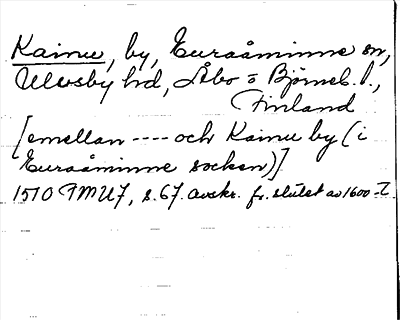 Kainu, by, Euraåminne sn,
Ulvsby hd, Åbo o Björneb. l.,
Finland
[emellan ---- och Kainu by (i
Euraåminne socken)]
1510 FMU7, s.67. avskr. fr. slutet av 1600-t.